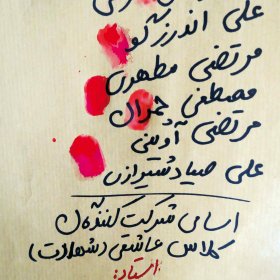 علی اندرزگو
مرتضی مطهری
مصطفی چمران
مرتضی آوینی
علی صیاد شیرازی
اسامی شرکت کنندگان
کلاس عاشقی (شهادت)
استاد: